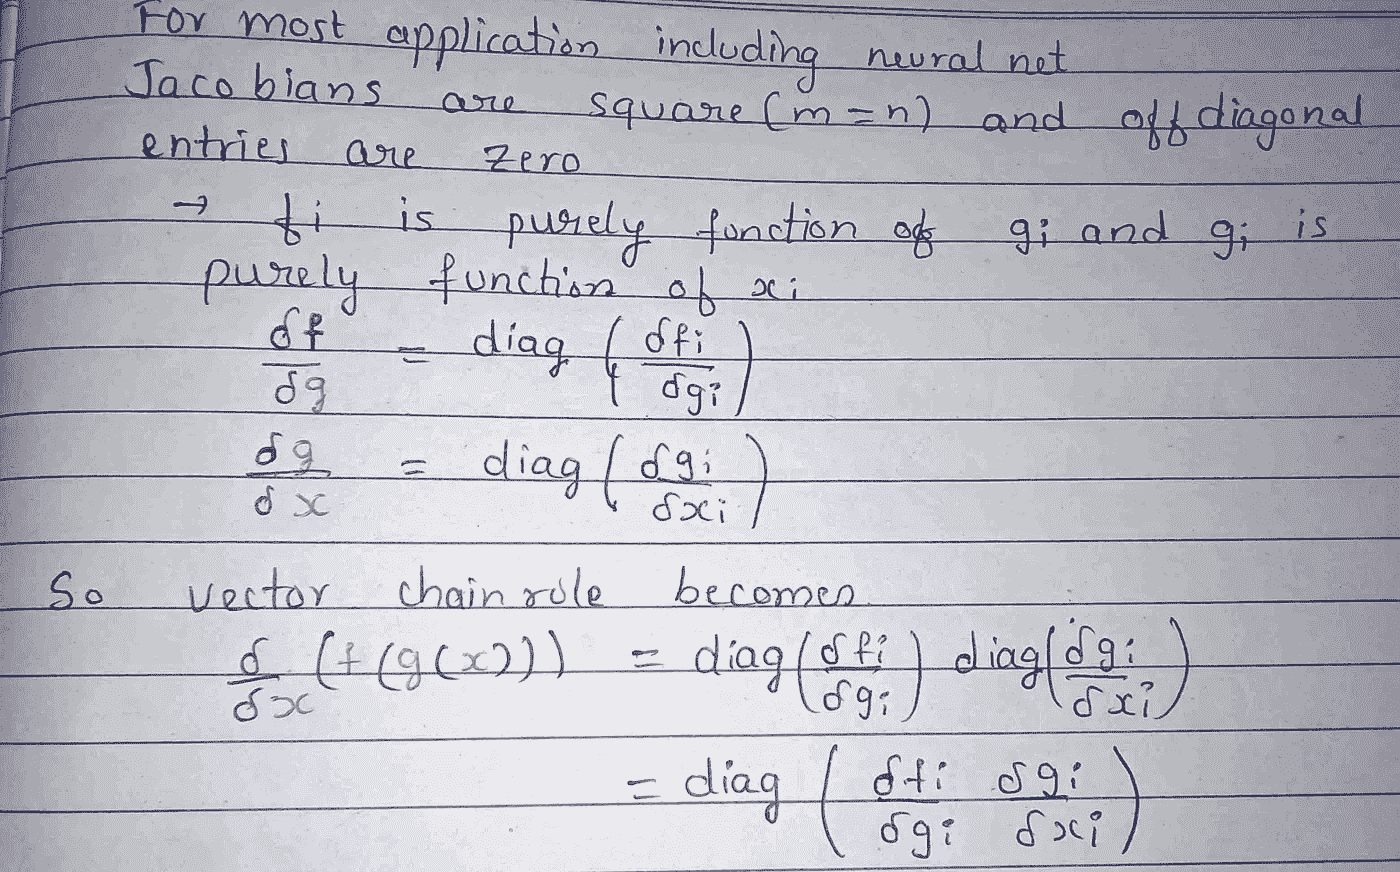 For most application including neural net
Jacobians are square (m=n) and off diagonal
entries are zero
→ fi is purely function of gi and gi is
purely function of xi
δf/δg = diag (δfi/δgi)
δg/δx = diag (δgi/δxi)
So vector chain rule becomes
δ/δx (f(g(x))) = diag (δfi/δgi) diag (δgi/δxi)
= diag (δfi/δgi δgi/δxi)